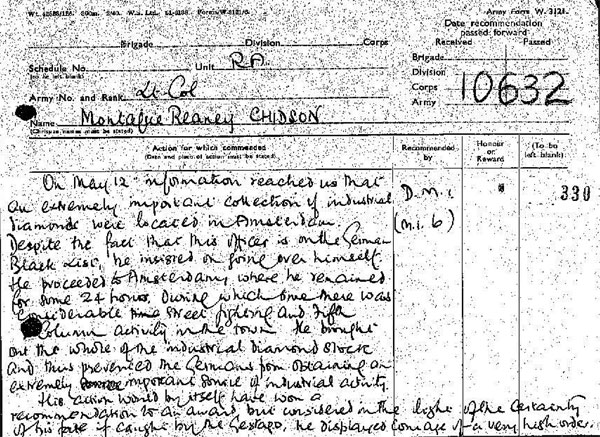 Army Form W. 3121.
Date recommendation
passed forward
Brigade Division Corps
Received Passed
Schedule No. Unit R.A.
(to be left blank)
Brigade
Division
Corps
Army
10632
Army No. and Rank Lt Col
Name Montague Reaney CHIDSON
(Christian names must be stated)
Action for which commended
(Date and place of action must be stated)
Recommended
by
Honour
or
Reward
(To be
left blank)
On May 12th information reached us that
an extremely important collection of industrial
diamonds were located in Amsterdam.
Despite the fact that this officer is on the German
Black List, he insisted on going over himself.
He proceeded to Amsterdam, where he remained
for some 24 hours, during which time there was
considerable street fighting and Fifth
Column activity in the town. He brought
out the whole of the industrial diamond stock
and thus prevented the Germans from obtaining an
extremely important source of industrial activity.
His action would by itself have won a
recommendation to an award, but considered in the light of the certainty
of his fate if caught by the Gestapo, he displayed courage of a very high order.
D.M.I.
(M.I.6)
330